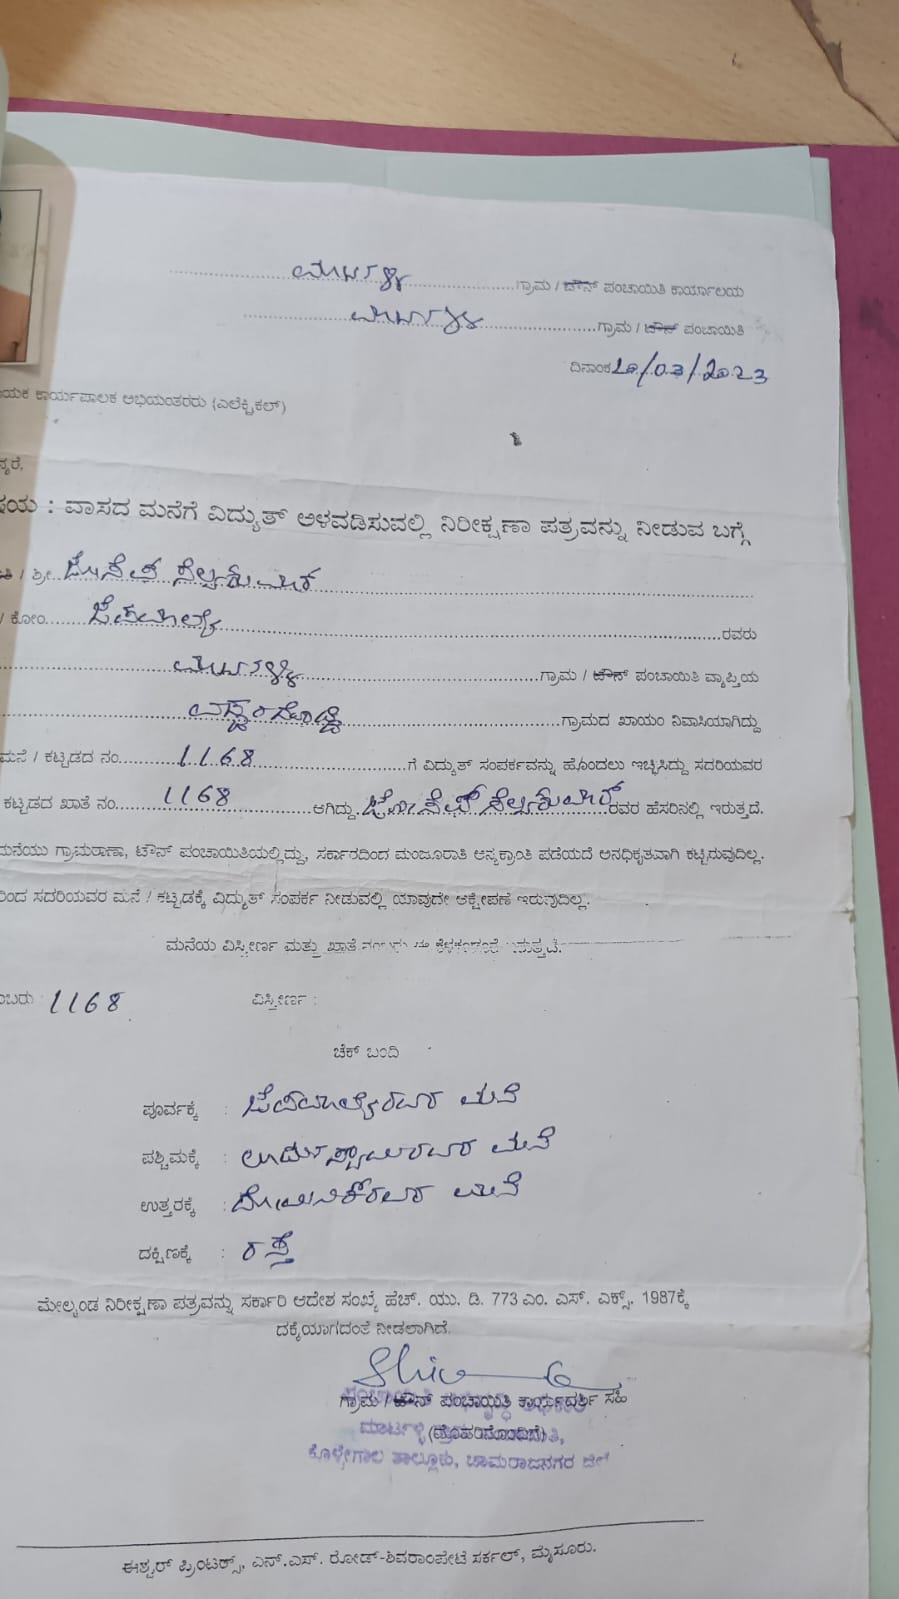 ಮಾರ್ಟಳ್ಳಿ ಗ್ರಾಮ / ಟೌನ್ ಪಂಚಾಯಿತಿ ಕಾರ್ಯಾಲಯ
ಮಾರ್ಟಳ್ಳಿ ಗ್ರಾಮ / ಟೌನ್ ಪಂಚಾಯಿತಿ
ದಿನಾಂಕ 20/03/2023
ಯಕ ಕಾರ್ಯಪಾಲಕ ಅಭಿಯಂತರರು (ಎಲೆಕ್ಟ್ರಿಕಲ್)
ನ್ಯರೆ,
ಷಯ : ವಾಸದ ಮನೆಗೆ ವಿದ್ಯುತ್ ಅಳವಡಿಸುವಲ್ಲಿ ನಿರೀಕ್ಷಣಾ ಪತ್ರವನ್ನು ನೀಡುವ ಬಗ್ಗೆ
ತಿ / ಶ್ರೀ ಜೋಸೆಫ್ ಸೆಲ್ವಕುಮಾರ್
/ ಕೋಂ ರವರು
ಮಾರ್ಟಳ್ಳಿ ಗ್ರಾಮ / ಟೌನ್ ಪಂಚಾಯಿತಿ ವ್ಯಾಪ್ತಿಯ
ಗ್ರಾಮದ ಖಾಯಂ ನಿವಾಸಿಯಾಗಿದ್ದು
ಮನೆ / ಕಟ್ಟಡದ ನಂ. 1168 ಗೆ ವಿದ್ಯುತ್ ಸಂಪರ್ಕವನ್ನು ಹೊಂದಲು ಇಚ್ಛಿಸಿದ್ದು ಸದರಿಯವರ
ಕಟ್ಟಡದ ಖಾತೆ ನಂ. 1168 ಆಗಿದ್ದು ಜೋಸೆಫ್ ಸೆಲ್ವಕುಮಾರ್ ರವರ ಹೆಸರಿನಲ್ಲಿ ಇರುತ್ತದೆ.
ಮನೆಯು ಗ್ರಾಮಠಾಣಾ, ಟೌನ್ ಪಂಚಾಯಿತಿಯಲ್ಲಿದ್ದು, ಸರ್ಕಾರದಿಂದ ಮಂಜೂರಾತಿ ಅನ್ಯಕ್ರಾಂತಿ ಪಡೆಯದೆ ಅನಧಿಕೃತವಾಗಿ ಕಟ್ಟಿರುವುದಿಲ್ಲ.
ರಿಂದ ಸದರಿಯವರ ಮನೆ / ಕಟ್ಟಡಕ್ಕೆ ವಿದ್ಯುತ್ ಸಂಪರ್ಕ ನೀಡುವಲ್ಲಿ ಯಾವುದೇ ಆಕ್ಷೇಪಣೆ ಇರುವುದಿಲ್ಲ.
ಮನೆಯ ವಿಸ್ತೀರ್ಣ ಮತ್ತು ಖಾತೆ
ಂಬರು : 1168 ವಿಸ್ತೀರ್ಣ :
ಚೆಕ್ ಬಂದಿ
ಪೂರ್ವಕ್ಕೆ : ಮನೆ
ಪಶ್ಚಿಮಕ್ಕೆ : ಮನೆ
ಉತ್ತರಕ್ಕೆ : ಮನೆ
ದಕ್ಷಿಣಕ್ಕೆ : ರಸ್ತೆ
ಮೇಲ್ಕಂಡ ನಿರೀಕ್ಷಣಾ ಪತ್ರವನ್ನು ಸರ್ಕಾರಿ ಆದೇಶ ಸಂಖ್ಯೆ ಹೆಚ್. ಯು. ಡಿ. 773 ಎಂ. ಎಸ್. ಎಕ್ಸ್. 1987ಕ್ಕೆ
ದಕ್ಕೆಯಾಗದಂತೆ ನೀಡಲಾಗಿದೆ.
ಗ್ರಾಮ / ಟೌನ್ ಪಂಚಾಯಿತಿ ಕಾರ್ಯದರ್ಶಿ ಸಹಿ
(ಮೊಹರಿನೊಂದಿಗೆ)
ಕೊಳ್ಳೇಗಾಲ ತಾಲ್ಲೂಕು, ಚಾಮರಾಜನಗರ ಜಿಲ್ಲೆ
ಈಶ್ವರ್ ಪ್ರಿಂಟರ್ಸ್, ಎನ್.ಎಸ್. ರೋಡ್-ಶಿವರಾಂಪೇಟೆ ಸರ್ಕಲ್, ಮೈಸೂರು.